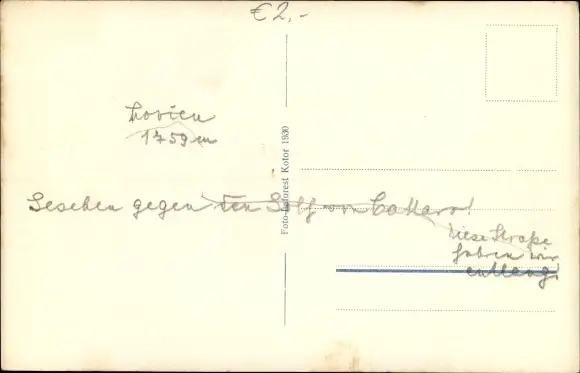 €2,-
Lovien
1759 m
Gesehen gegen den Golf von Cattaro!
diese Straße
fahren wir
entlang!
Foto-Laforest Kotor 1930